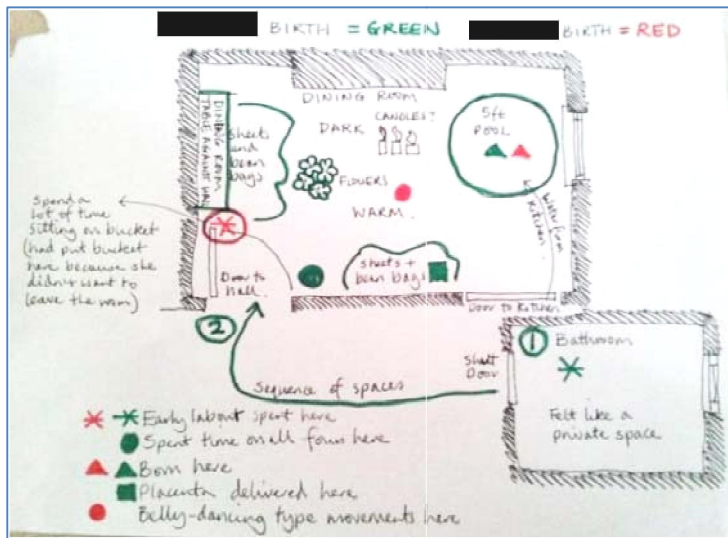 BIRTH = GREEN
BIRTH = RED
DINING ROOM
DARK
CANDLES?
5ft
POOL
DINING ROOM
TABLE AGAINST WALL
sheets
and
bean
bags
FLOWERS
WARM.
Water from
Kitchen.
Spend a
lot of time
sitting on bucket
(had put bucket
here because she
didn't want to
leave the room)
Door to
hall.
sheets +
bean bags
Door to Kitchen
2
1
Bathroom
Shut
Door
Felt like a
private space
Sequence of spaces
Early labour spent here
Spent time on all fours here
Born here
Placenta delivered here
Belly-dancing type movements here